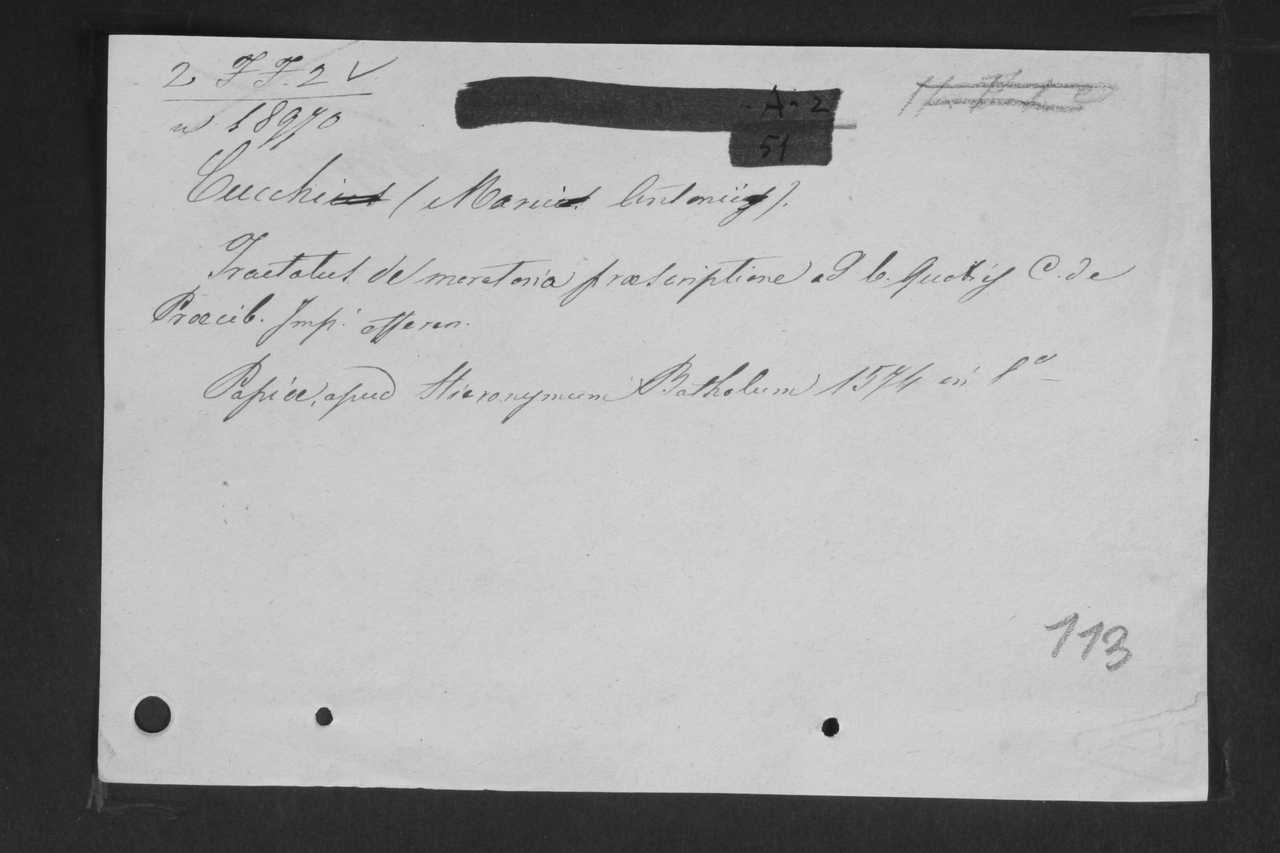 2 FF. 2 V
n 18970
A. 2
51
Cucchius (Marcus Antonius).
Tractatus de moratoria præscriptione ad l. Quotiẽs C. de
Precib. Imp. offeren.
Papiæ, apud Hieronymum Batholum 1574 in 8º
113